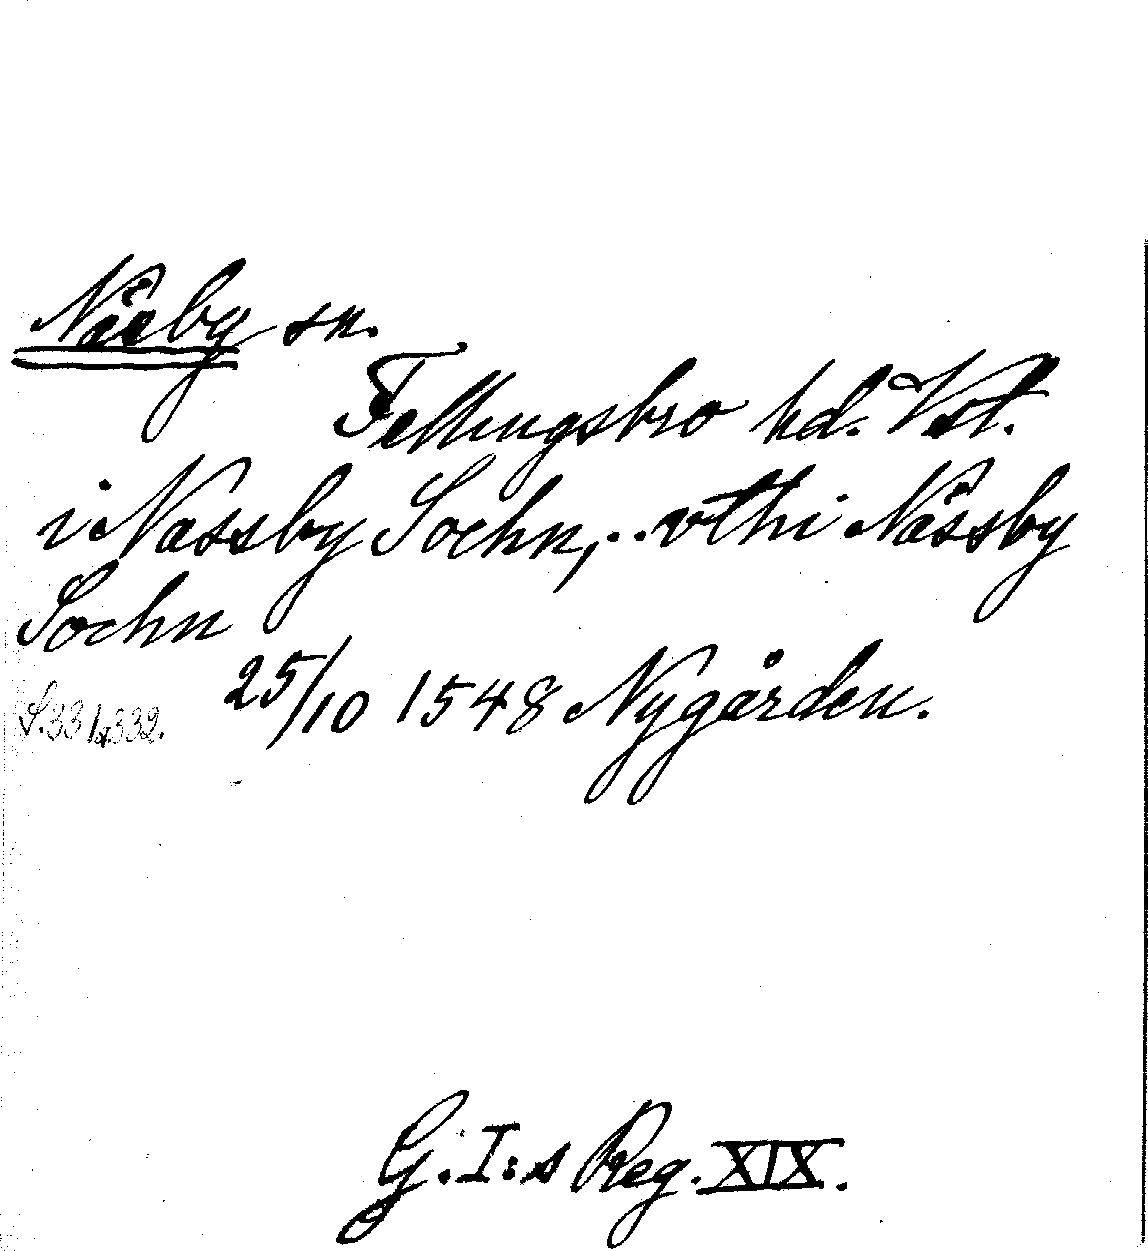 Näsby sn.
Fellingsbro hd. Vstl.
i Nassby Sochn,.. vthi Nässby
Sochn
25/10 1548 Nygården.
S. 331, 332.
G. I:s Reg. XIX.